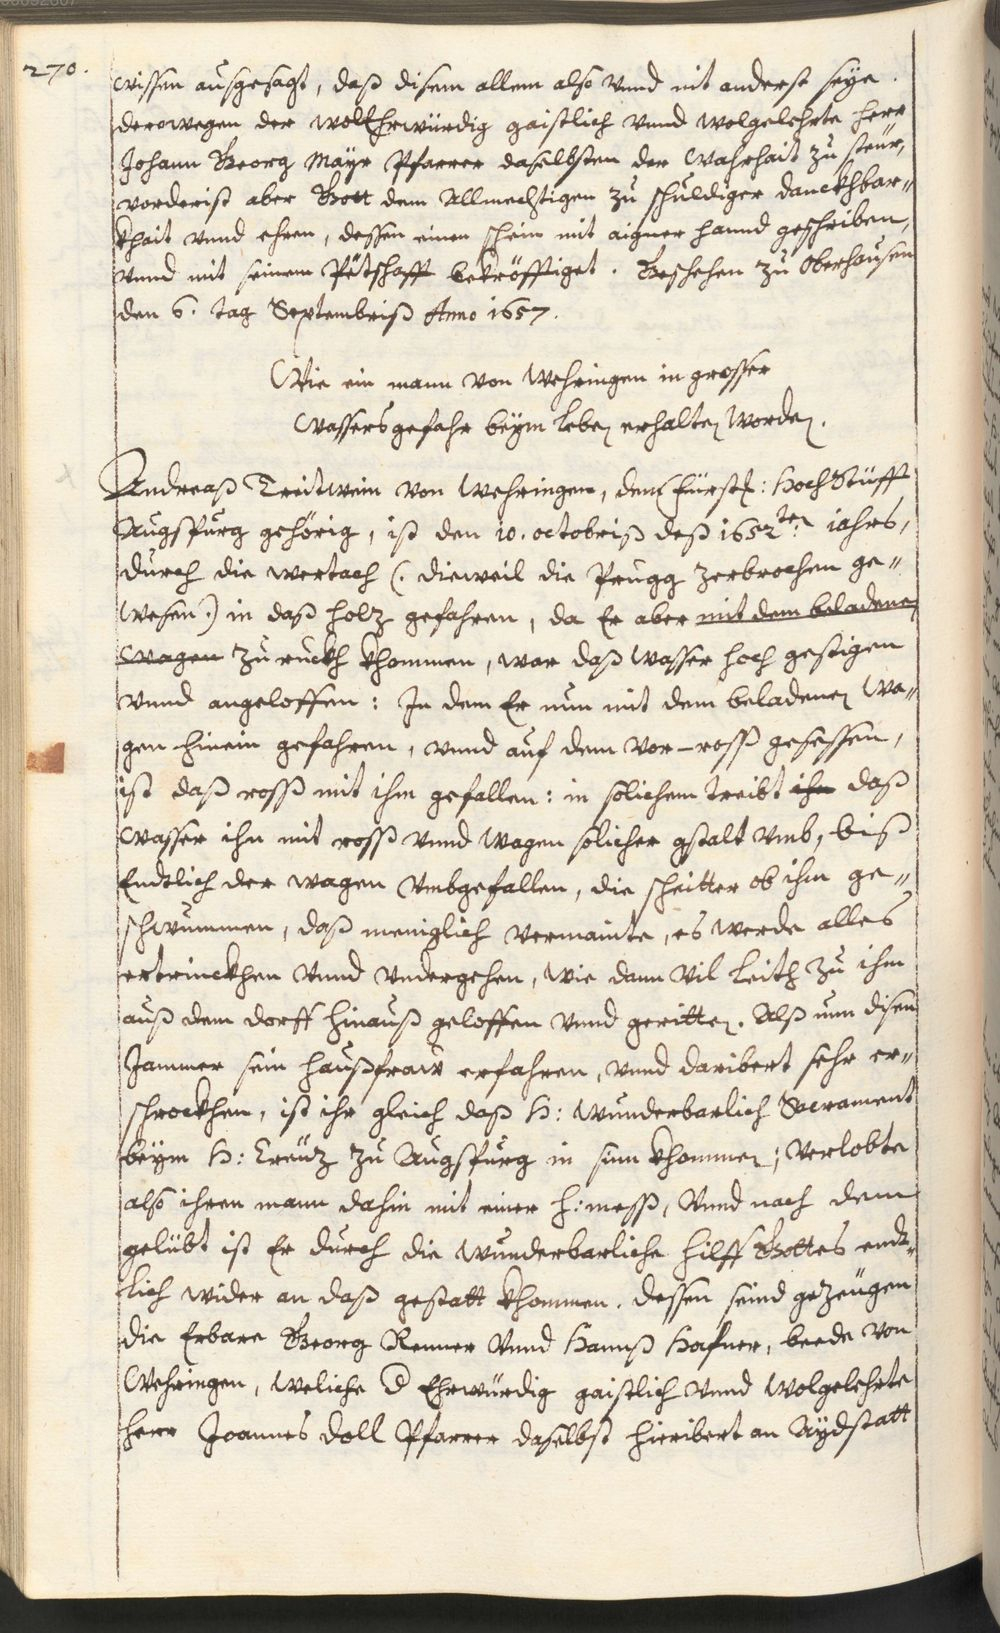 270.
wissen ausgesagt, daß disem allem also vnnd nit anderst seye.
derowegen der wolEhrwürdig gaistlich vnnd wolgelehrte herr
Johann Georg Mayr Pfarrer daselbsten der warhait zu steür,
vorderist aber Gott dem Allmechtigen zu schuldiger danckhbar„
khait vnnd ehren, dessen einen schein mit aigner hannd geschriben,
vnnd mit seinem Pëtschafft bekröfftiget. Beschehen zu Oberhausen
den 6. tag Septembriß Anno 1657.
Wie ein mann von Wehringen in grosser
Wassersgefahr beÿm leben erhalten worden.
Andreaß Treitwein von Wehringen, dem Fürstl: HochStüfft
Augspurg gehörig, ist den 10. octobriß deß 1652ten iahrs,
durch die wertach (. dieweil die Prugg zerbrochen ge„
wesen.) in daß holz gefahren, da Er aber mit dem beladenen
wagen zu ruckh khommen, war daß wasser hoch gestigen
vnnd angeloffen: In dem Er nun mit dem beladenen wa„
gen hinein gefahren, vnnd auf dem vor-rosß gesessen,
ist daß rosß mit ihm gefallen: in solichem treibt ihn daß
wasser ihn mit rosß vnnd wagen solicher gstalt vmb, biß
Endtlich der wagen vmbgefallen, die scheitter ob ihm ge„
schwummen, daß meniglich vermainte, es werde alles
ertrinckhen vnnd vndergehen, wie dann vil leith zu ihm
auß dem dorff hinauß geloffen vnnd geritten. Alß nun disen
Jammer sein haußfraw erfahren, vnnd daribert sehr er„
schrockhen, ist ihr gleich daß H: wunderbarlich Sacrament
beÿm H: Creütz zu Augspurg in sinn khommen; verlobte
also ihren mann dahin mit einer h: mesß, vnnd nach dem
gelübt ist Er durch die wunderbarliche hilff Gottes endt„
lich wider an daß gestatt khommen. dessen seind gezeügen
die Erbare Georg Renner vnnd Hannß Hafner, beede von
Wehringen, weliche d Ehrwürdig gaistlich vnnd wolgelehrte
herr Joannes Doll Pfarrer daselbst hieribert an Aÿdstatt